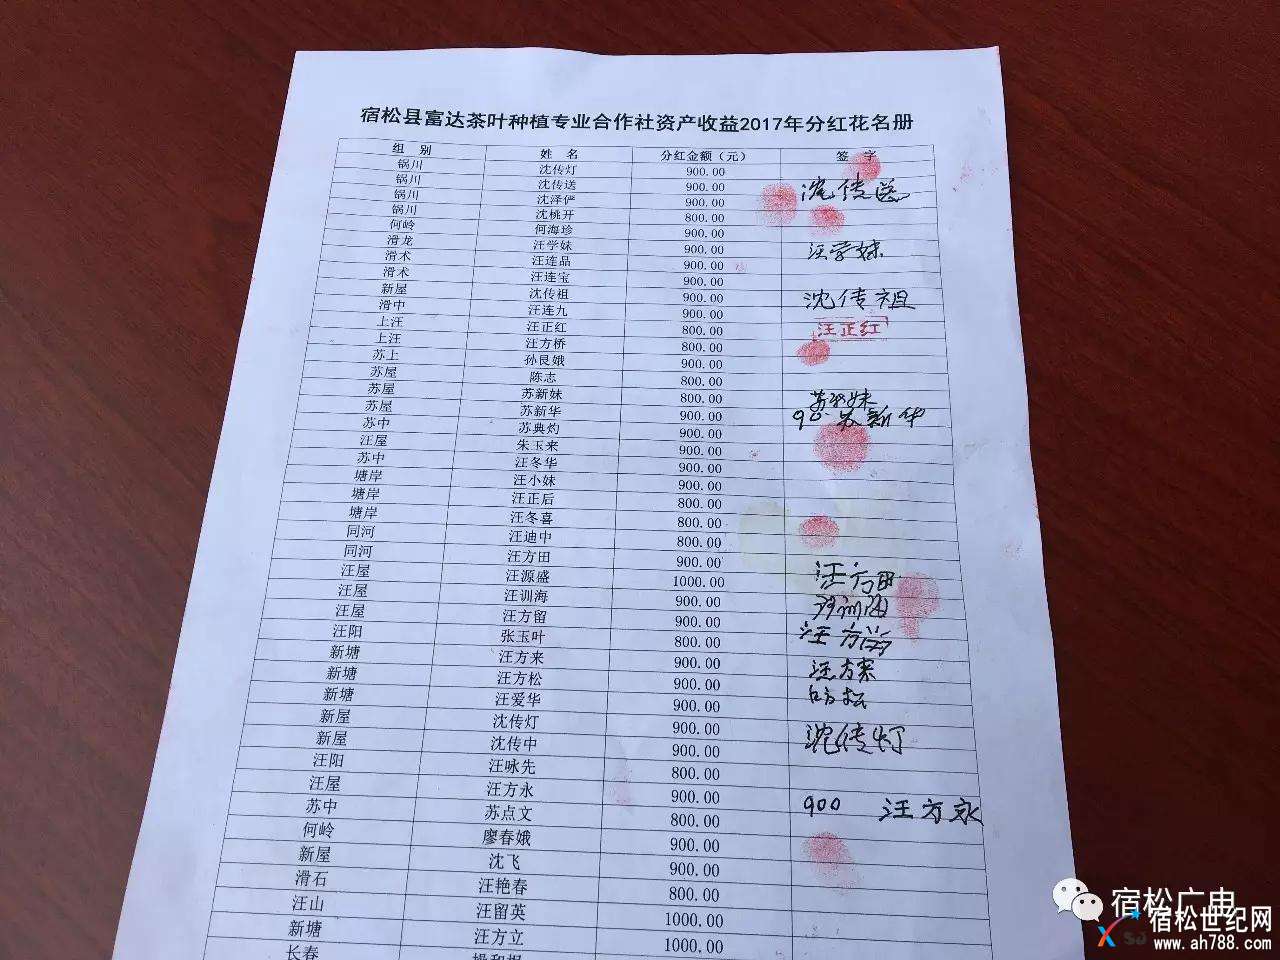 宿松县富达茶叶种植专业合作社资产收益2017年分红花名册
组 别 姓 名 分红金额（元） 签 字
锅川 沈传灯 900.00
锅川 沈传送 900.00 沈传送
锅川 沈泽俨 900.00
锅川 沈桃开 800.00
何岭 何海珍 900.00
滑龙 汪学妹 900.00 汪学妹
滑术 汪连品 900.00
滑术 汪连宝 900.00
新屋 沈传祖 900.00 沈传祖
滑中 汪连九 900.00
上汪 汪正红 800.00 汪正红
上汪 汪方桥 800.00
苏上 孙艮娥 900.00
苏屋 陈志 800.00
苏屋 苏新妹 800.00 苏新妹
苏屋 苏新华 900.00 苏新华
苏中 苏典灼 900.00
汪屋 朱玉来 900.00
苏中 汪冬华 900.00
塘岸 汪小妹 900.00
塘岸 汪正后 800.00
塘岸 汪冬喜 800.00
同河 汪迪中 800.00
同河 汪方田 900.00 汪方田
汪屋 汪源盛 1000.00
汪屋 汪训海 900.00
汪屋 汪方留 900.00 汪方留
汪阳 张玉叶 800.00
新塘 汪方来 900.00 汪方来
新塘 汪方松 900.00
新塘 汪爱华 900.00
新屋 沈传灯 900.00 沈传灯
新屋 沈传中 900.00
汪阳 汪咏先 800.00
汪屋 汪方永 900.00 900 汪方永
苏中 苏点文 800.00
何岭 廖春娥 900.00
新屋 沈飞 900.00
滑石 汪艳春 800.00
汪山 汪留英 1000.00
新塘 汪方立 1000.00
长春
宿松广电
宿松世纪网
www.ah788.com